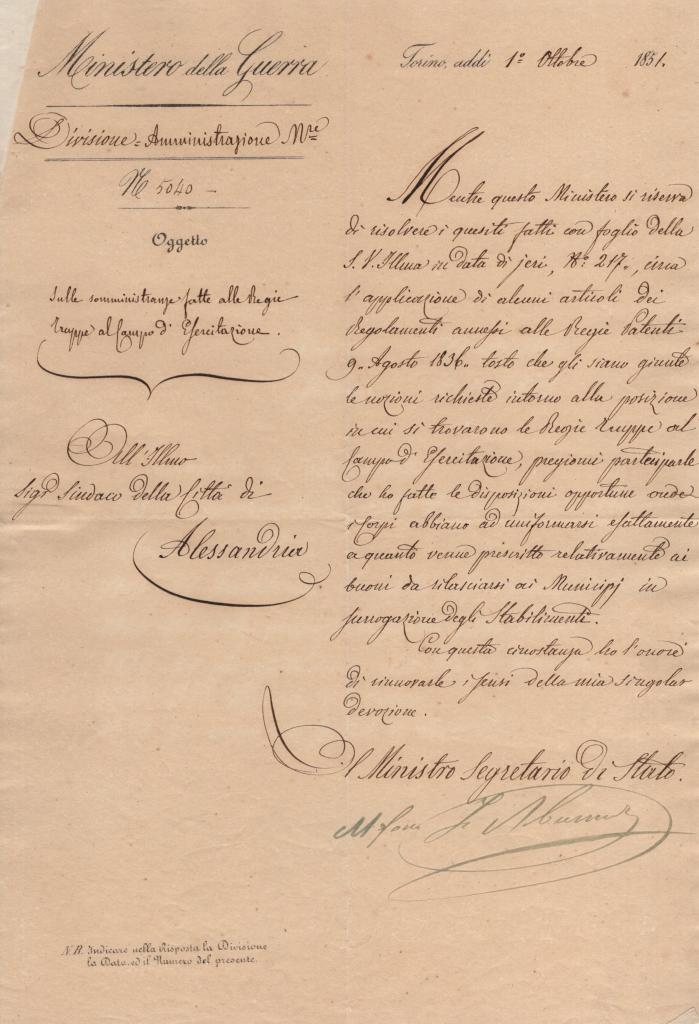 Ministero della Guerra
Divisione = Amministrazione Mre
N. 5040 -
Oggetto
Sulle somministranze fatte alle Regie
truppe al Campo d'Esercitazione.
All'Illmo
Sigr Sindaco della Città di
Alessandria
Torino, addì 1º Ottobre 1851.
Mentre questo Ministero si riserva
di risolvere i quesiti fatti con foglio della
S. V. Illma in data di jeri, Nº 217, circa
l'applicazione di alcuni articoli dei
Regolamenti annessi alle Regie Patenti
9 Agosto 1836 tosto che gli siano giunte
le nozioni richieste intorno alla posizione
in cui si trovarono le Regie truppe al
Campo d'Esercitazione, pregiomi parteciparle
che ho fatte le disposizioni opportune onde
i Corpi abbiano ad uniformarsi esattamente
a quanto venne prescritto relativamente ai
buoni da rilasciarsi ai Municipj in
surrogazione degli Stabilimenti.
Con questa circostanza ho l'onore
di rinnovarle i sensi della mia singolar
devozione.
Il Ministro Segretario di Stato.
N.B. Indicare nella Risposta la Divisione
la Data, ed il Numero del presente.